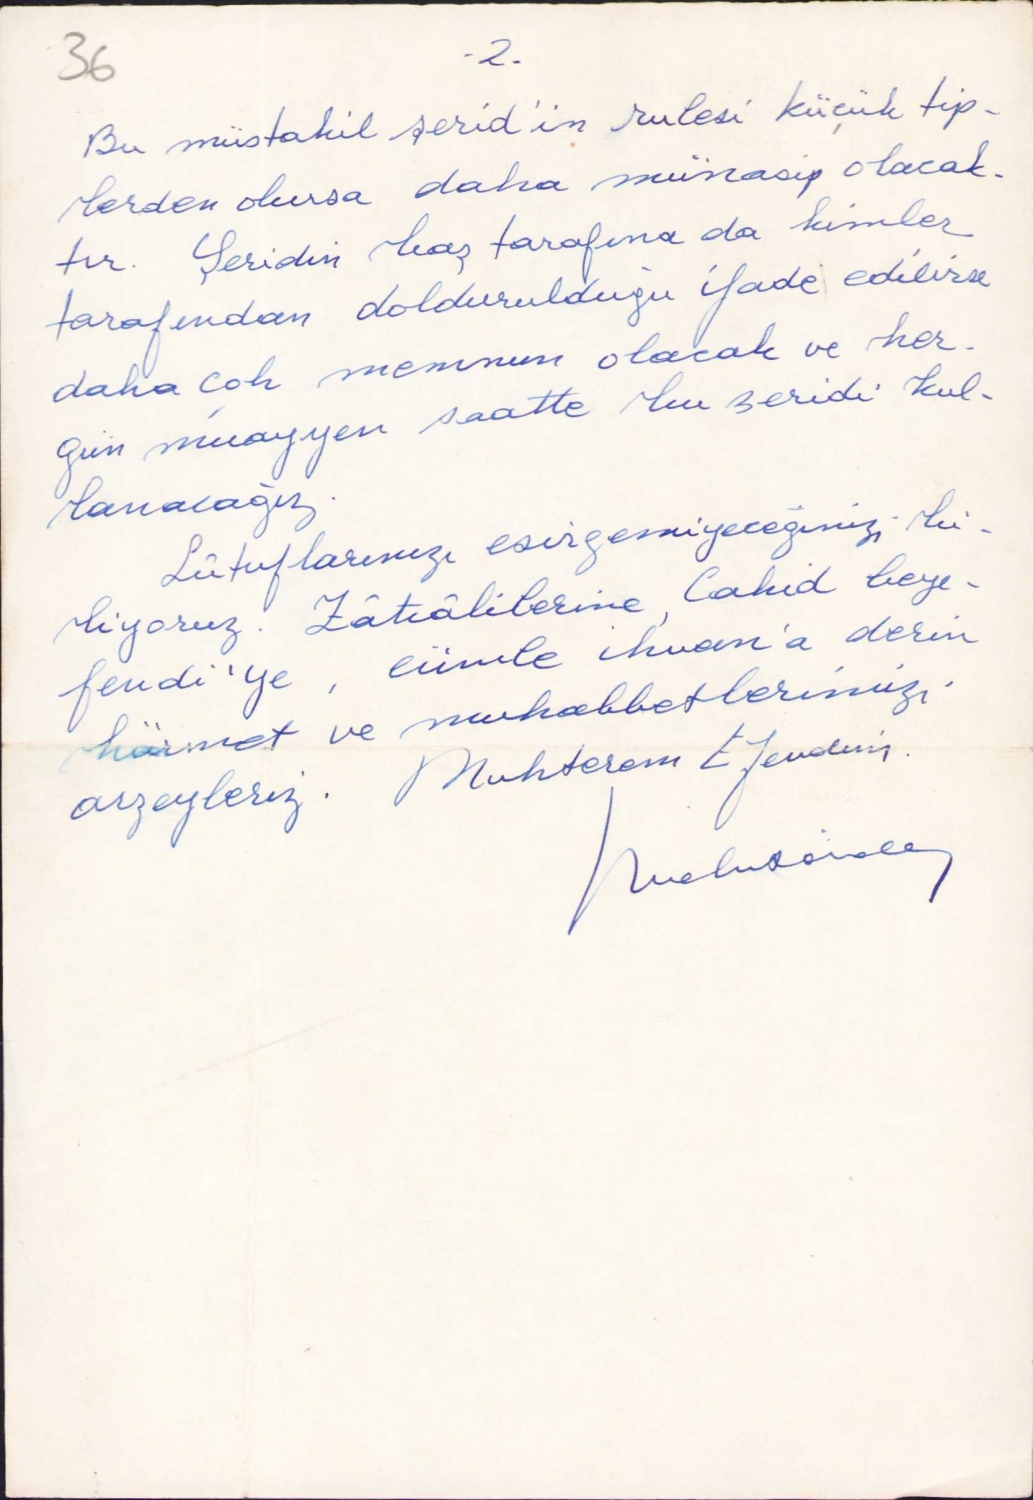 36
-2.
Bu müstakil şerid'in rulesi küçük tip-
lerden olursa daha münasip olacak-
tır. Şeridin baş tarafına da kimler
tarafından doldurulduğu ifade edilirse
daha çok memnun olacak ve her-
gün muayyen saatte bu şeridi kul-
lanacağız.
Lûtuflarınızı esirgemiyeceğinizi bi-
liyoruz. Zâtıâlilerine, Cahid beye-
fendi'ye, cümle ihvan'a derin
hürmet ve muhabbetlerimizi
arzeyleriz. Muhterem Efendim.